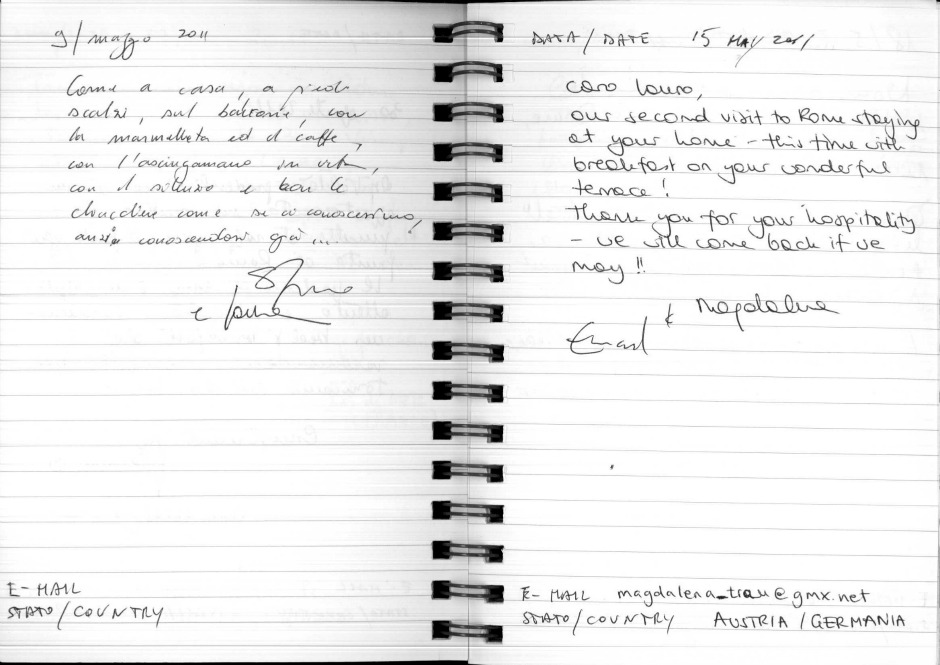 9/maggio 2011
Come a casa, a piedi
scalzi, sul balcone, con
la marmellata ed il caffè,
con l'asciugamano in vita,
con il silenzio e con le
chiacchiere come se ci conoscessimo,
anzi conoscendosi già...!
e
E-MAIL
STATO/COUNTRY
DATA/DATE 15 MAY 2011
Caro Lauro,
our second visit to Rome staying
at your home - this time with
breakfast on your wonderful
terrace!
Thank you for your hospitality
- we will come back if we
may!!
& Magdalena
E-MAIL magdalena_trau@gmx.net
STATO/COUNTRY AUSTRIA/GERMANIA